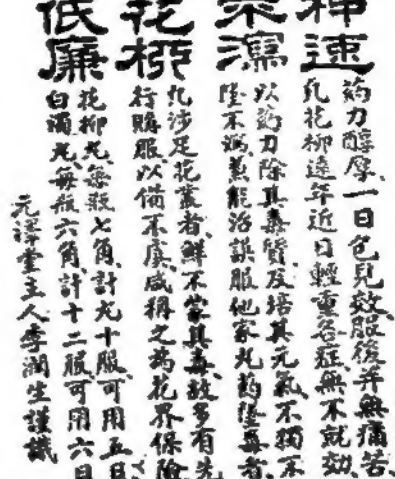 神速
藥力醇厚、一日包見效、服後并無痛苦、
凡花柳遠年近日輕重各症、無不就効、
瀉
以藥力除其毒質、及培其元氣、不獨不
墜不瀉、兼能治誤服他家丸藥墜毒者、
花柳
凡涉足花叢者、鮮不蒙其毒、故多有先
行購服、以備不虞、咸稱之為花界保險
低廉
花柳丸每瓶七角、計丸十服、可用五日、
白濁丸每瓶六角、計十二服、可用六日
元澤堂主人李潤生謹識